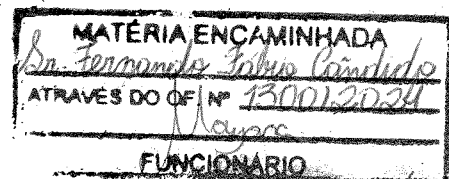 MATÉRIA ENCAMINHADA
Sr. Fernando Fábio Cândido
ATRAVÉS DO OF. Nº 130012024
Mayara
FUNCIONÁRIO